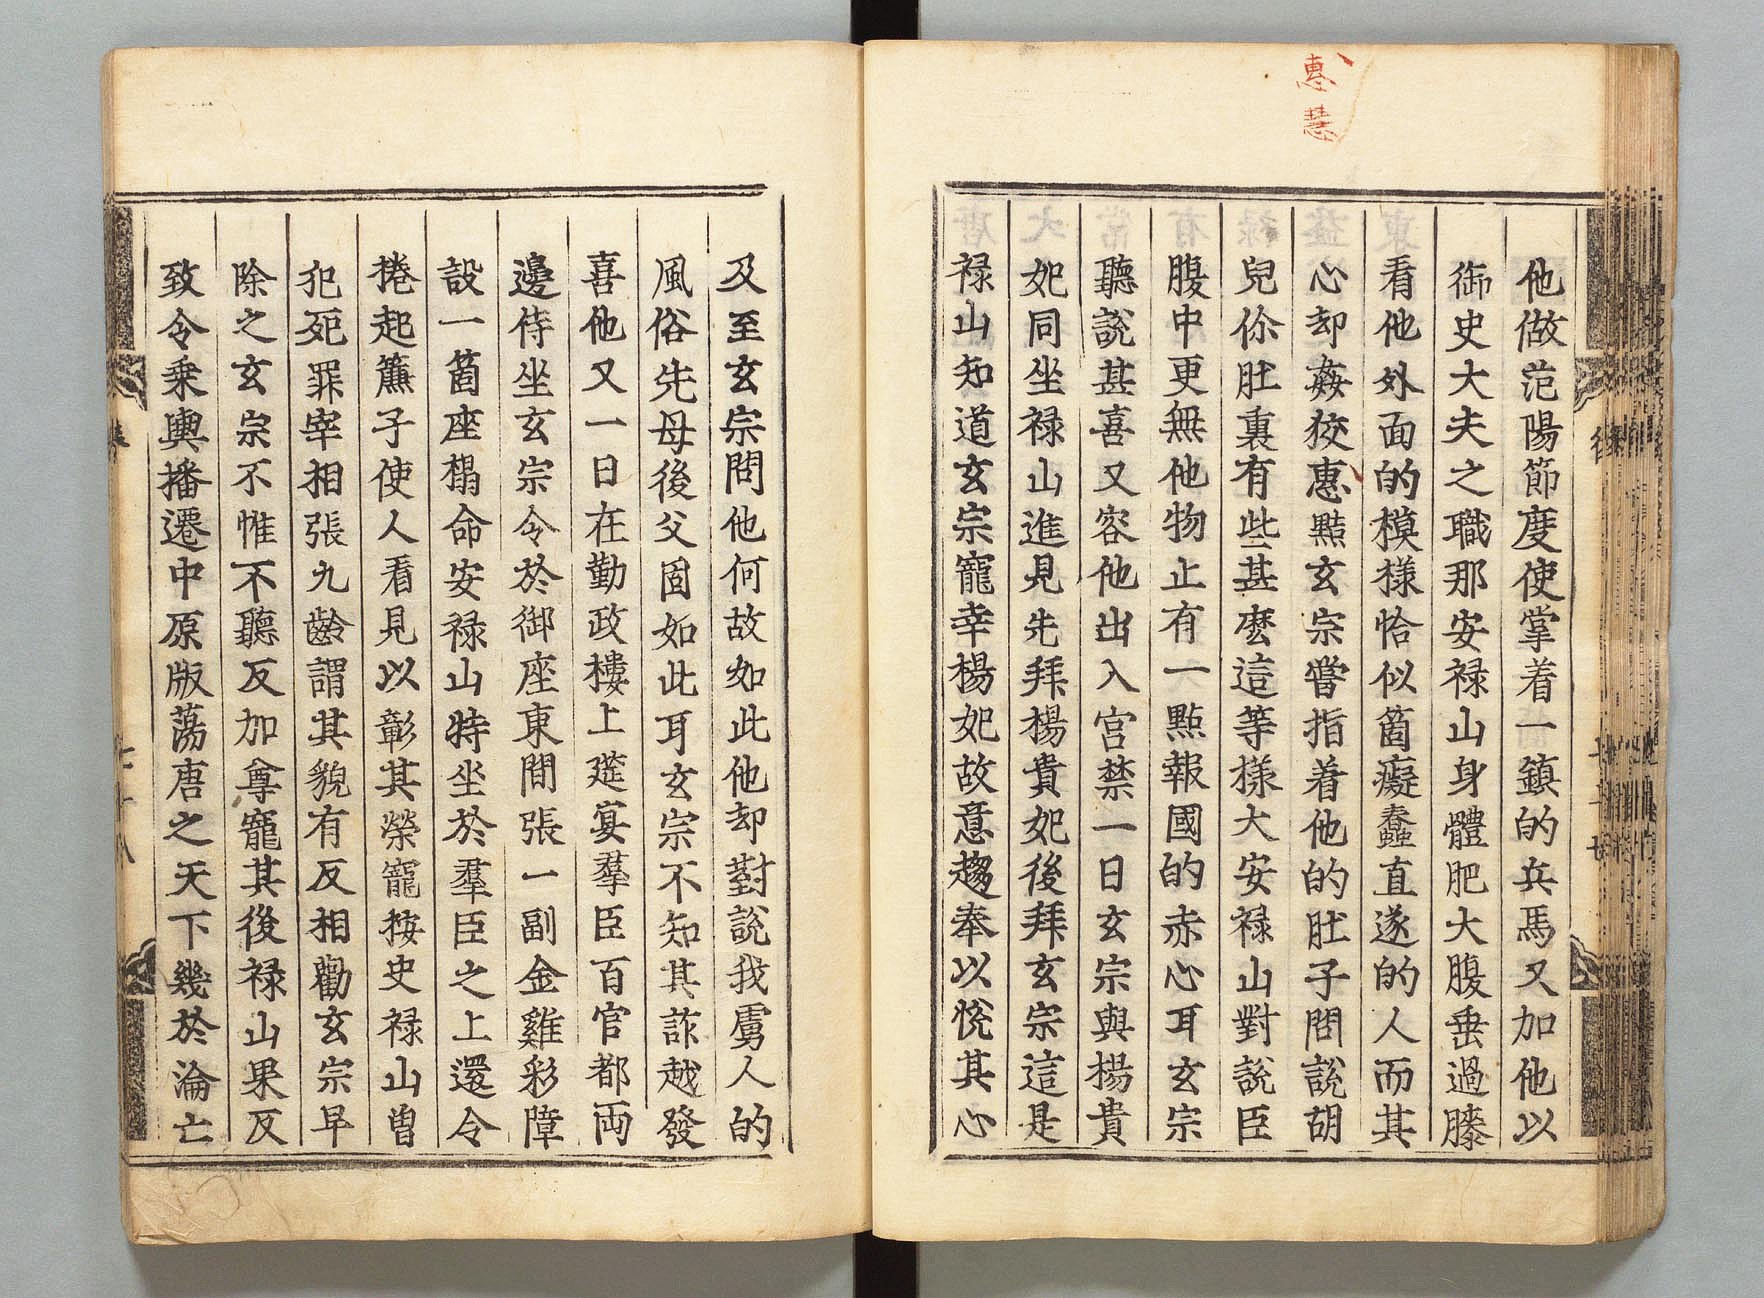 惠
慧
他做范陽節度使掌着一鎮的兵馬又加他以
御史大夫之職那安禄山身體肥大腹垂過膝
看他外面的模樣恰似箇癡蠢直遂的人而其
心却姦狡惠黠玄宗嘗指着他的肚子問說胡
兒伱肚裏有些甚麽這等樣大安禄山對說臣
腹中更無他物止有一點報國的赤心耳玄宗
聽說甚喜又容他出入宫禁一日玄宗與楊貴
妃同坐禄山進見先拜楊貴妃後拜玄宗這是
禄山知道玄宗寵幸楊妃故意趨奉以恱其心
及至玄宗問他何故如此他却對說我虜人的
風俗先母後父固如此耳玄宗不知其詐越發
喜他又一日在勤政樓上筵宴羣臣百官都両
邊侍坐玄宗令於御座東間張一副金雞彩障
設一箇座榻命安禄山特坐於羣臣之上還令
捲起簾子使人看見以彰其榮寵按史禄山曽
犯死罪宰相張九齡謂其貌有反相勸玄宗早
除之玄宗不惟不聽反加尊寵其後禄山果反
致令乗輿播遷中原版蕩唐之天下幾於淪亡